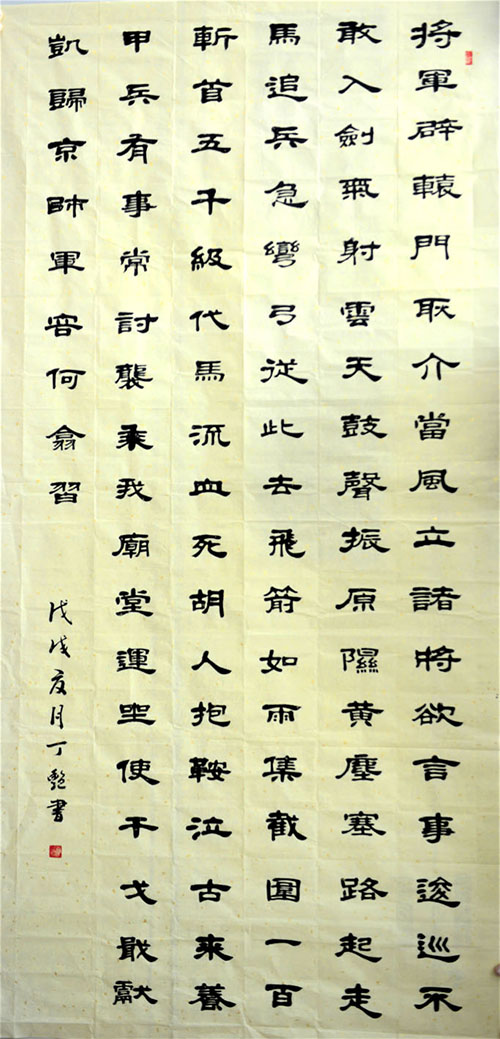 將軍辟轅門耿介當風立諸將欲言事逡巡不
敢入劍氣射雲天鼓聲振原隰黃塵塞路起走
馬追兵急彎弓從此去飛箭如雨集截圍一百
斬首五千級代馬流血死胡人抱鞍泣古來養
甲兵有事常討襲乘我廟堂運坐使干戈戢獻
凱歸京師軍容何翕習
戊戌夏月丁艷書